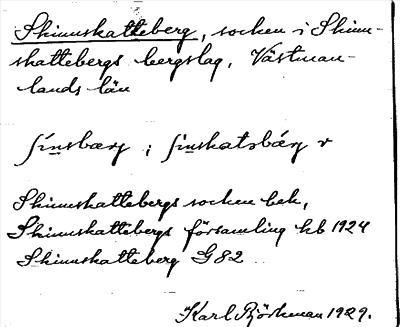 Skinnskatteberg, socken i Skinn-
skattebergs bergslag, Västman-
lands län
ſínsbærj ; ſinskatsbǽrj v
Skinnskattebergs socken bek,
Skinnskattebergs församling kb 1924
Skinnskatteberg G82
Karl Björkman 1929.